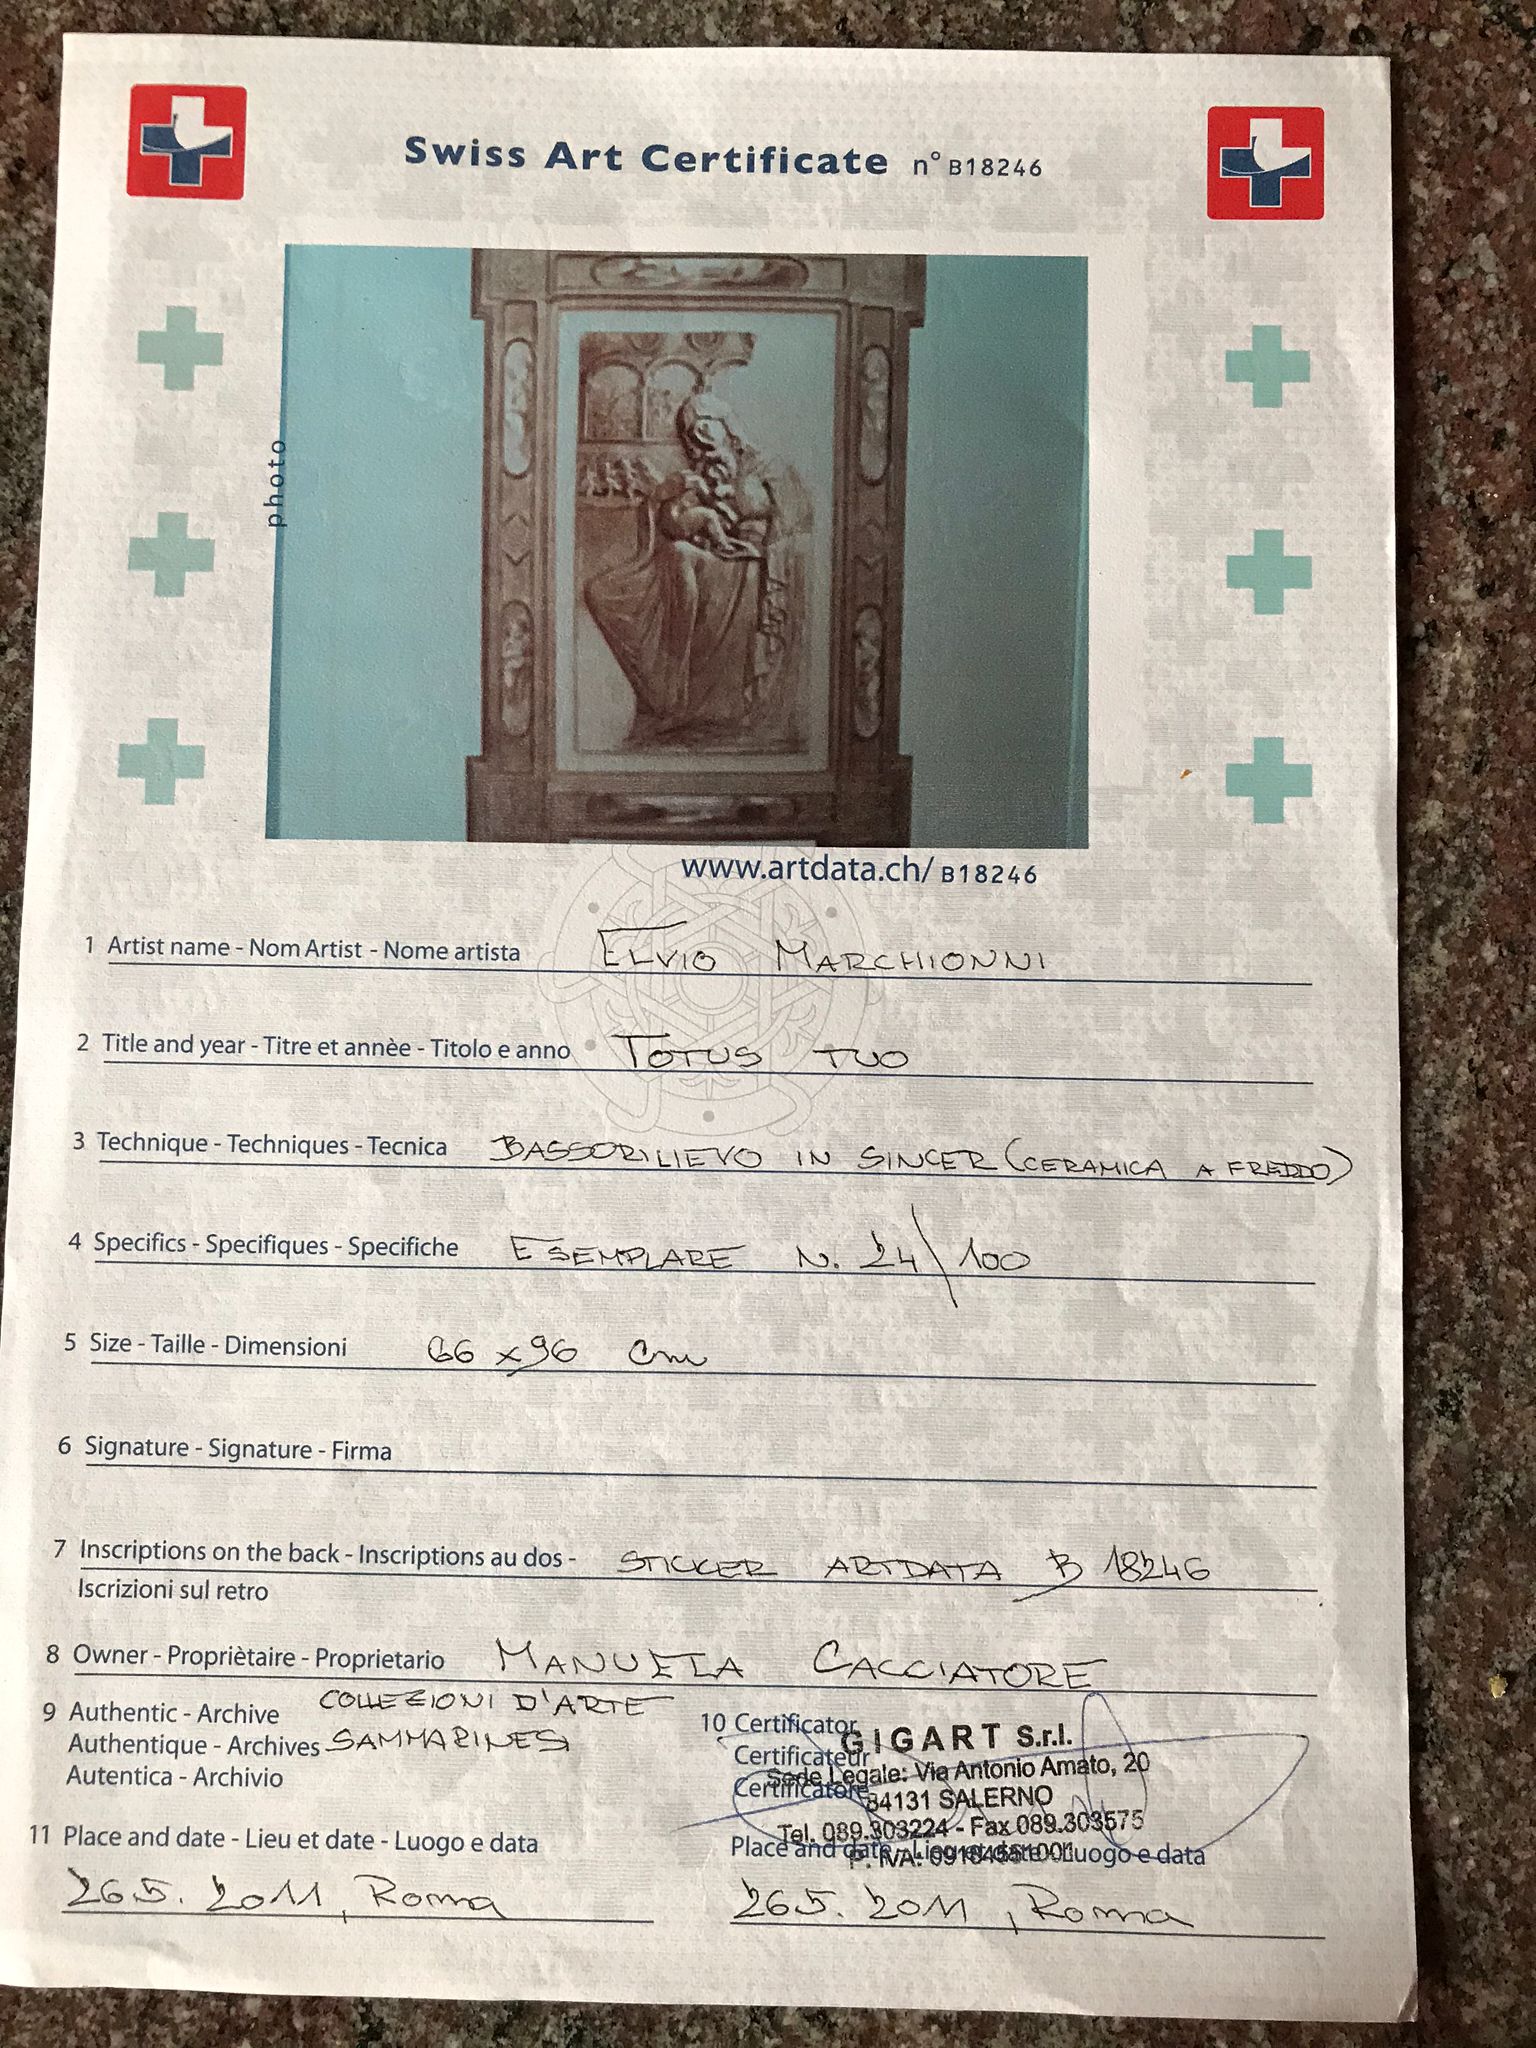 Swiss Art Certificate n° B18246
photo
www.artdata.ch/ B18246
1 Artist name - Nom Artist - Nome artista ELVIO MARCHIONNI
2 Title and year - Titre et annèe - Titolo e anno TOTUS TUO
3 Technique - Techniques - Tecnica BASSORILIEVO IN SINCER (CERAMICA A FREDDO)
4 Specifics - Specifiques - Specifiche ESEMPLARE N. 24\100
5 Size - Taille - Dimensioni 66 x 96 cm
6 Signature - Signature - Firma
7 Inscriptions on the back - Inscriptions au dos - STICKER ARTDATA B 18246
Iscrizioni sul retro
8 Owner - Propriètaire - Proprietario MANUELA CACCIATORE
9 Authentic - Archive COLLEZIONI D'ARTE
Authentique - Archives SAMMARINESI
Autentica - Archivio
10 Certificator
Certificateur
Certificatore
GIGART S.r.l.
Sede Legale: Via Antonio Amato, 20
84131 SALERNO
Tel. 089.303224 - Fax 089.303575
P. IVA:
11 Place and date - Lieu et date - Luogo e data
26.5. 2011, Roma
Place and date - Lieu et date - Luogo e data
26.5. 2011, Roma